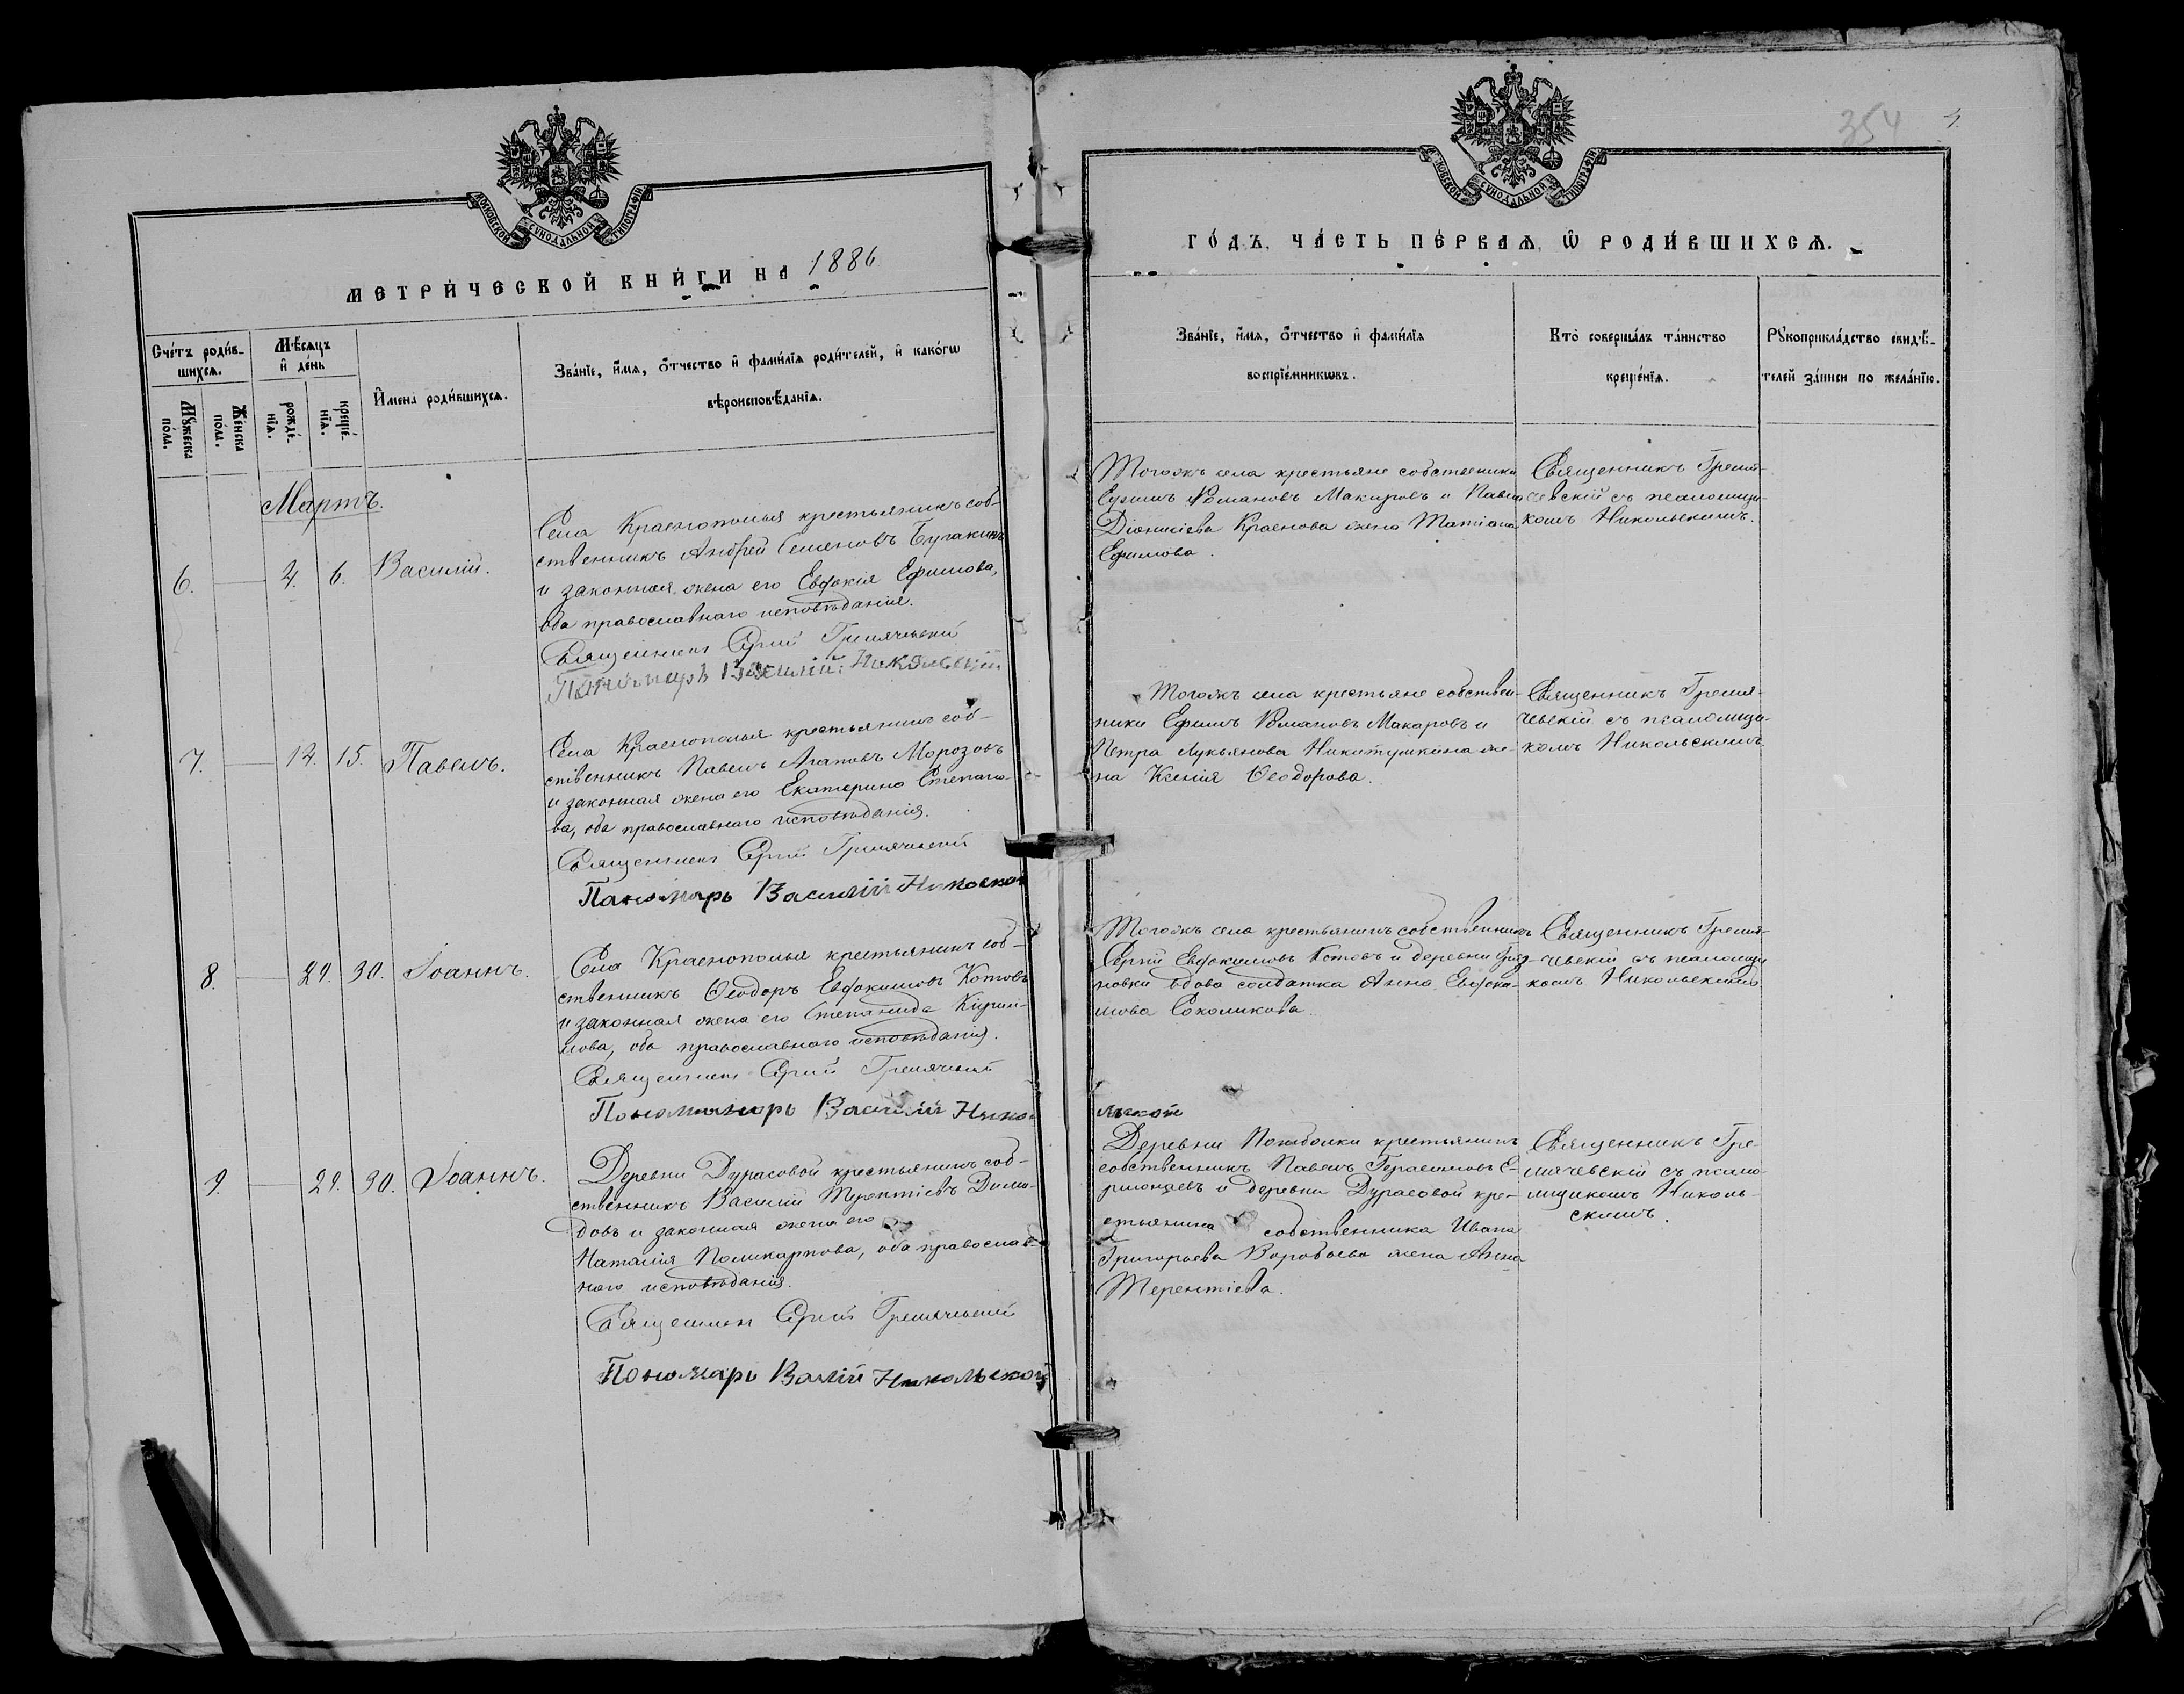 МОСКОВСКОЙ СѴНОДАЛЬНОЙ ТИПОГРАФІИ
МЕТРИ́ЧЕСКОЙ КНИ́ГИ НА 1886
Сче́тъ роди́в-
шихсѧ.
Мѣ́сѧцъ
и҆ де́нь
Мꙋ́жеска
по́ла.
Же́нска
по́ла.
рожде́-
нїѧ.
креще́-
нїѧ.
И҆мена̀ роди́вшихсѧ.
Зва́нїе, и҆́мѧ, ѻ҆́тчество и҆ фами́лїѧ роди́телей, и҆ како́гѡ
вѣроисповѣ́данїѧ.
Мартъ.
6. 4. 6. Василій.
Села Краснополья крестьянинъ соб-
ственникъ Андрей Семеновъ Бугакинъ
и законная жена его Евдокія Ефимова,
оба православнаго исповѣданія.
Священникъ Сергій Гремячевскій
Пономарь Василій Никольскій
7. 14. 15. Павелъ.
Села Краснополья крестьянинъ соб-
ственникъ Павелъ Агаповъ Морозовъ
и законная жена его Екатерина Степано-
ва, оба православнаго исповѣданія.
Священникъ Сергій Гремячевскій
Пономарь Василій
8. 29. 30. Іоаннъ.
Села Краснополья крестьянинъ соб-
ственникъ Ѳеодоръ Евдокимовъ Котовъ
и законная жена его Степанида Кирил-
лова, оба православнаго исповѣданія.
Священникъ Сергій Гремячевскій
Пономарь Василій Нико
9. 29. 30. Іоаннъ.
Деревни Дурасовой крестьянинъ соб-
ственникъ Василій Терентіевъ Деми-
довъ и законная жена его
Наталія Поликарпова, оба православ-
наго исповѣданія.
Священникъ Сергій Гремячевскій
Пономарь Никольской
354
МОСКОВСКОЙ СѴНОДАЛЬНОЙ ТИПОГРАФІИ
ГО́ДЪ, ЧА́СТЬ ПЕ́РВАѦ, Ѽ РОДИ́ВШИХСѦ.
Зва́нїе, и҆́мѧ, ѻ҆́тчество и҆ фами́лїѧ
воспрїе́мникѡвъ.
Кто̀ соверша́лъ та́инство
креще́нїѧ.
Рꙋкоприкла́дство свидѣ́-
телей за́писи по жела́нїю.
Тогожъ села крестьяне собственники
Ефимъ Романовъ Макаровъ и Павла
Діонисіева Краснова жена Татіана
Ефимова.
Священникъ Гремя-
чевскій съ псаломщи-
комъ Никольскимъ.
Тогожъ села крестьяне собствен-
ники Ефимъ Романовъ Макаровъ и
Петра Лукьянова Никитушкина же-
на Ксенія Ѳеодорова.
Священникъ Гремя-
чевскій съ псаломщи-
комъ Никольскимъ.
Тогожъ села крестьянинъ собственникъ
Сергій Евдокимовъ Котовъ и деревни
новки вдова солдатка Анна Евдоки-
мова Соколикова.
Священникъ Гремя-
чевскій съ псаломщи
комъ Никольскимъ
льской
Деревни крестьянинъ
собственникъ Павелъ Герасимовъ Е-
и деревни Дурасовой кре-
стьянина собственника Ивана
Григорьева Воробьева жена Анна
Терентіева.
Священникъ Гре-
мячевскій съ псало-
мщикомъ Николь-
скимъ.